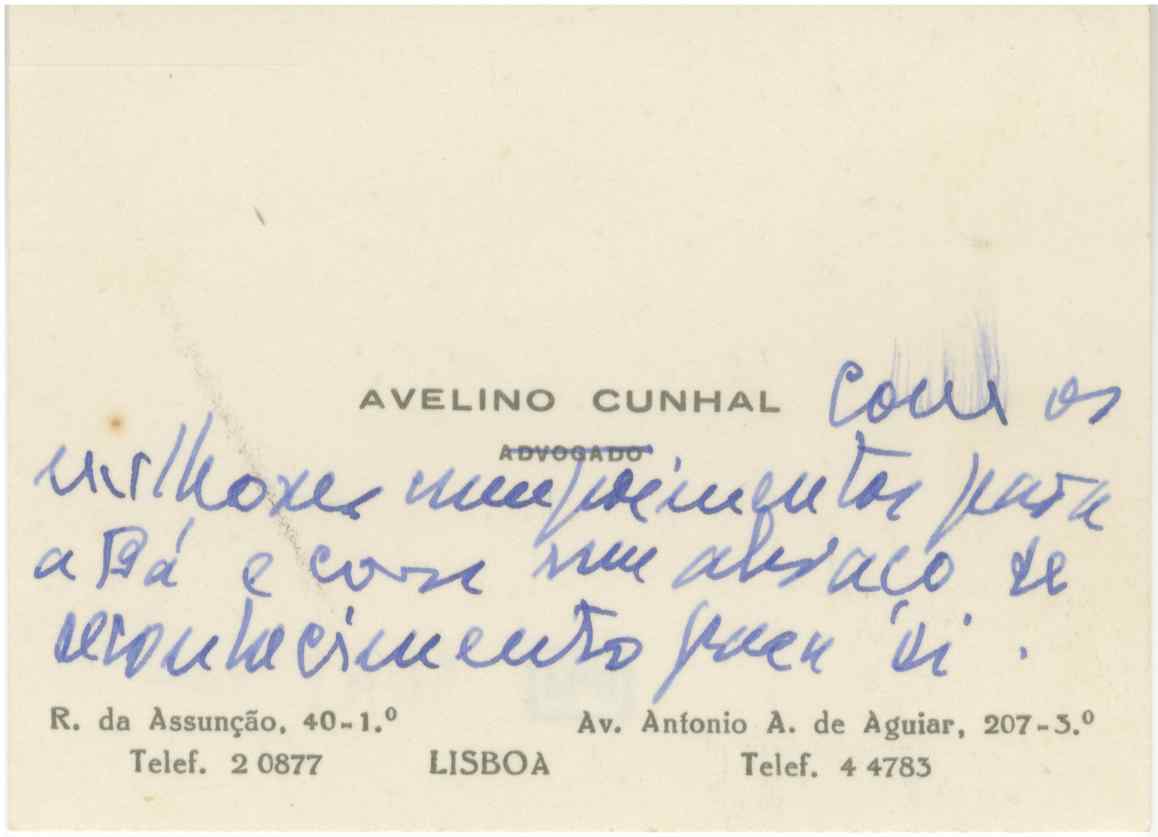 AVELINO CUNHAL com os
ADVOGADO
melhores cumprimentos para
a Bá e com um abraço de
reconhecimento para si.
R. da Assunção, 40-1.º Av. Antonio A. de Aguiar, 207-3.º
Telef. 2 0877 LISBOA Telef. 4 4783